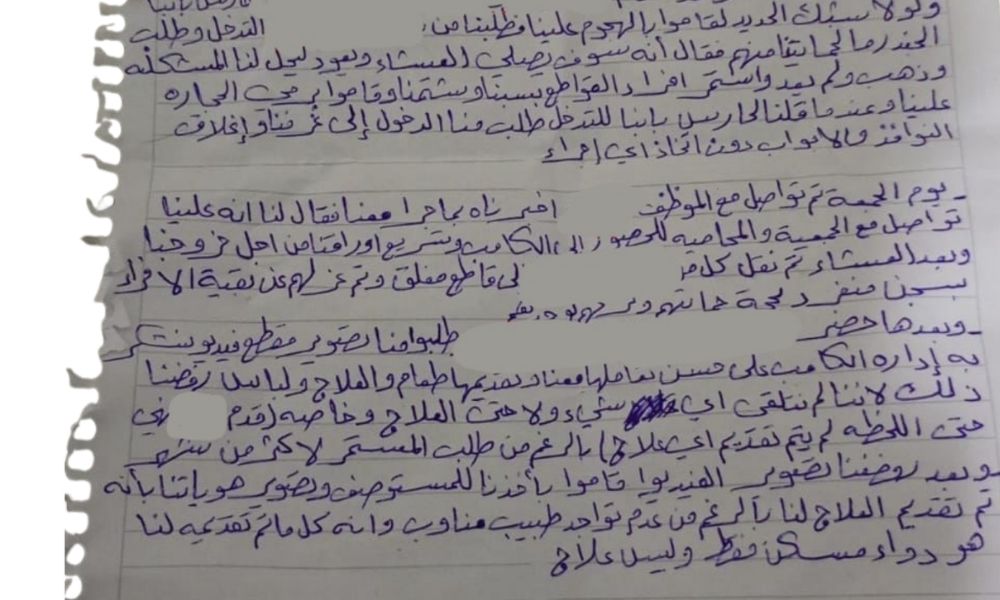 ولولا سبتك الحديد لقاموا بالهجوم علينا فطلبنا من التدخل وطلب
الجندرما لحمايتنا منهم فقال أنه سوف يصلي العشاء ويعود ليحل لنا المشكلة
وذهب ولم يعد واستمر افراد القواطع بسبنا وشتمنا وقاموا برمي الحجاره
علينا وعندما قلنا للحارس بابنا للتدخل طلب منا الدخول إلى غرفنا وإغلاق
النوافذ والابواب دون اتخاذ اي إجراء
_ يوم الجمعة تم تواصل مع الموظف اخبرناه بما جرا معنا فقال لنا انه علينا
تواصل مع الجمعية والمحاميه للحضور إلى الكامب وتسريع اوراقنا من اجل خروجنا
وبعد العشاء تم نقل كل من لى قاطع مغلق وتم عزلهم عن بقية الافراد
بسجن منفرد لحجة حمايتهم
_ وبعدها حضر طلبوا منا تصوير مقطع فيديو نشكر
به إداره الكامب على حسن تعاملها معنا وتقديمها طعام والعلاج ولباس رفضنا
ذلك لاننا لم نتلقى اي شيء ولا حتى العلاج وخاصه (قدم ني
حتى اللحظه لم يتم تقديم اي علاج) بالرغم من طلب المستمر لاكثر من شهر
وبعد رفضنا تصوير الفيديوا قاموا بأخذنا للمستوصف وتصوير هوياتنا بأنه
تم تقديم العلاج لنا بالرغم من عدم تواجد طبيب مناوب وانه كل ماتم تقديمه لنا
هو دواء مسكن فقط وليس علاج